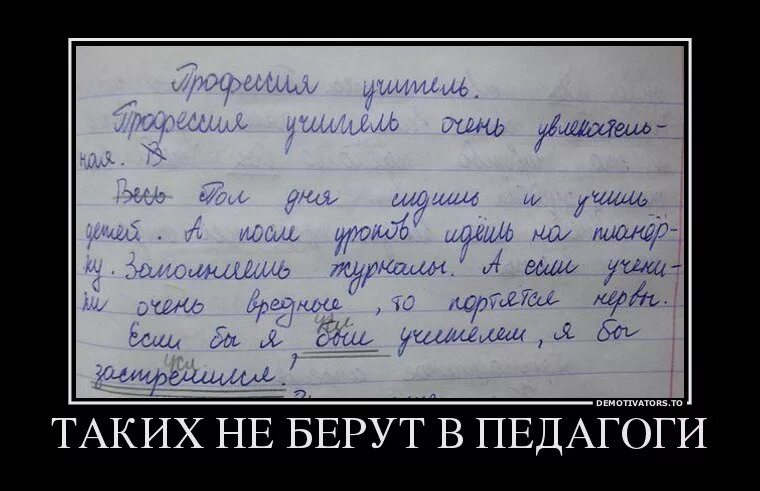 Профессия учитель.
Профессия учитель очень увлекатель-
ная.
Весь Пол дня сидишь и учишь
детей. А после уроков идёшь на планёр-
ку. Заполняешь журналы. А если учени-
ки очень вредные, то портятся нервы.
Если бы я был учителем, я бы
застрелился.
DEMOTIVATORS.TO
ТАКИХ НЕ БЕРУТ В ПЕДАГОГИ